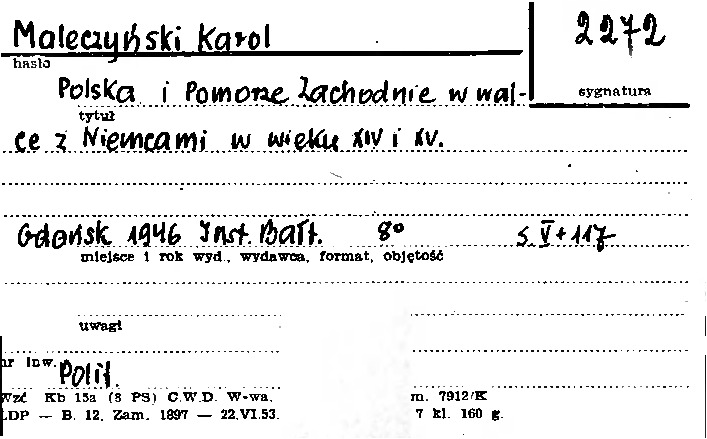 Maleczyński Karol
2272
hasło
sygnatura
Polska i Pomorze Zachodnie w wal-
tytuł
ce z Niemcami w wieku XIV i XV.
Gdańsk 1946 Inst. Bałt. 8° s. V + 117
miejsce i rok wyd., wydawca, format, objętość
uwagi
nr inw.
Polit.
Wzć Kb 15a (8 PS) C.W.D. W-wa.
m. 7912/K
LDP — B. 12. Zam. 1897 — 22.VI.53.
7 kl. 160 g.